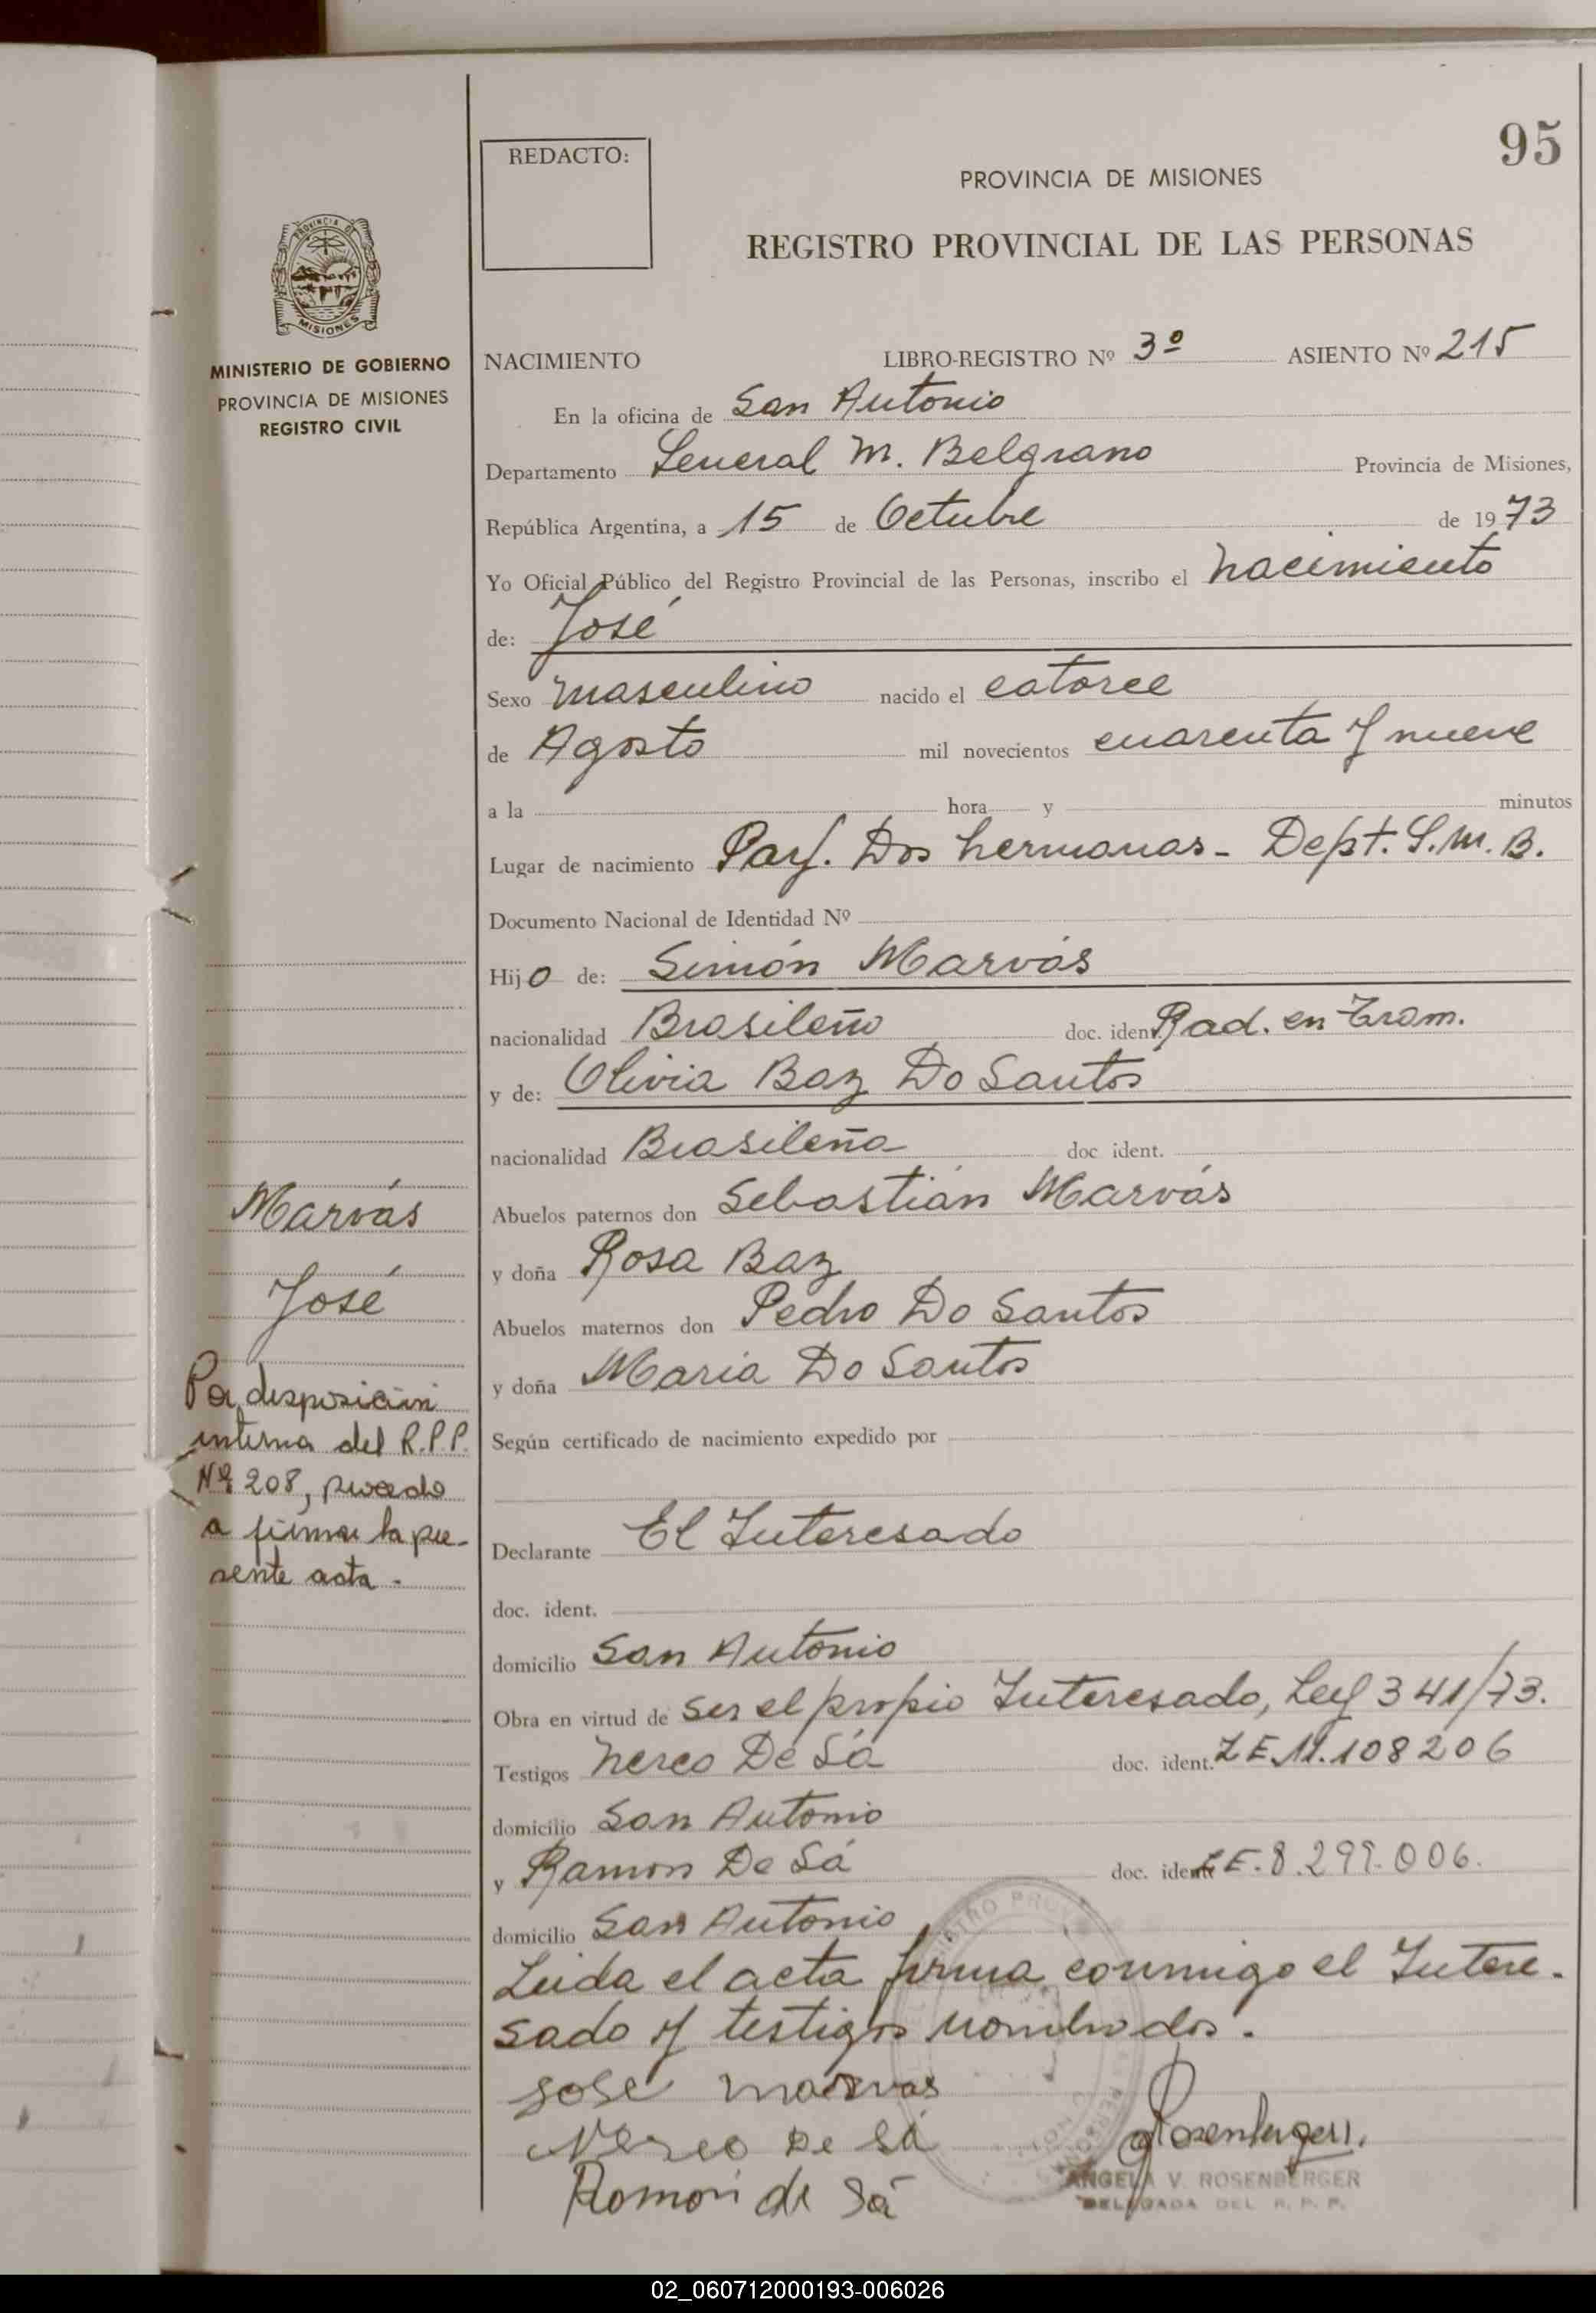 95
REDACTO:
PROVINCIA DE MISIONES
REGISTRO PROVINCIAL DE LAS PERSONAS
PROVINCIA DE
MISIONES
MINISTERIO DE GOBIERNO
PROVINCIA DE MISIONES
REGISTRO CIVIL
NACIMIENTO LIBRO-REGISTRO Nº 3º ASIENTO Nº 215
En la oficina de San Antonio
Departamento General M. Belgrano Provincia de Misiones,
República Argentina, a 15 de Octubre de 1973
Yo Oficial Público del Registro Provincial de las Personas, inscribo el nacimiento
de: José
Sexo masculino nacido el catorce
de Agosto mil novecientos cuarenta y nueve
a la hora y minutos
Lugar de nacimiento Parj. Dos hermanas - Dept. G.M.B.
Documento Nacional de Identidad Nº
Hijo de: Simón Marvás
nacionalidad Brasileño doc. ident. Rad. en Tram.
y de: Olivia Baz Do Santos
nacionalidad Brasileña doc ident.
Abuelos paternos don Sebastián Marvás
y doña Rosa Baz
Abuelos maternos don Pedro Do Santos
y doña María Do Santos
Según certificado de nacimiento expedido por
Declarante El Interesado
doc. ident.
domicilio San Antonio
Obra en virtud de ser el propio Interesado, Ley 341/73.
Testigos Nereo De Sá doc. ident. LE M.108206
domicilio San Antonio
y Ramon De Sá doc. ident. LE.8.299.006.
domicilio San Antonio
Leida el acta firma conmigo el Intere-
sado y testigos nombrados.
Jose marvas
Nereo De Sá
Ramon de Sá
Rosenberger
ANGELA V. ROSENBERGER
DELEGADA DEL R. P. P.
Marvás
José
Por disposición
interna del R.P.P.
Nº 208, procedo
a firmar la pre-
sente acta -
02_060712000193-006026